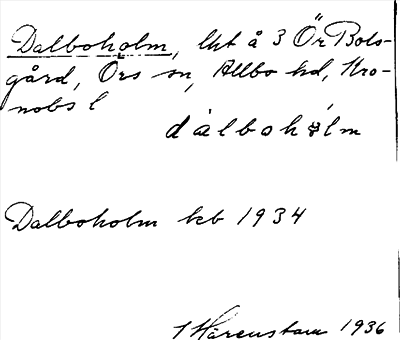 Dalboholm, lht å 3 Ör Bols-
gård, Örs sn, Allbo hd, Kro-
nobs l
dalbohɷlm
Dalboholm kb 1934
Härenstam 1936